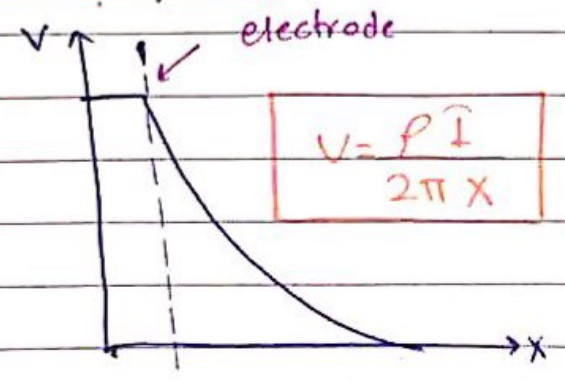 V
electrode
V = ρ Î
2π X
X